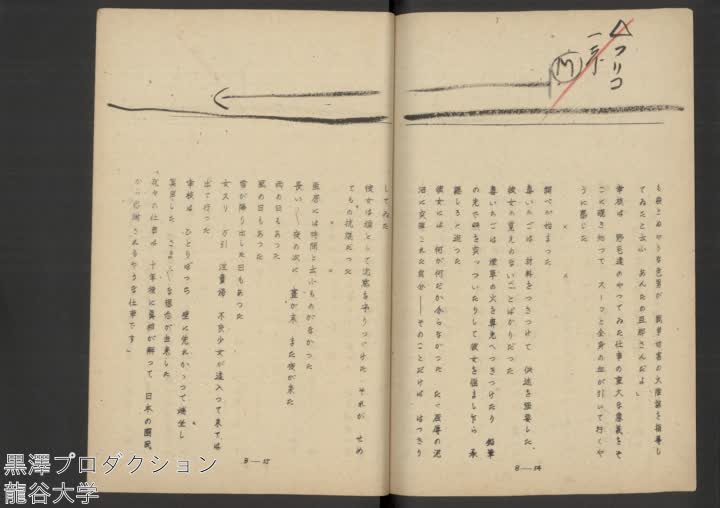 も殺さぬやうな色男が 戦争妨害の大陰謀を指導し
てゐたと云ふ あんたの旦那さんだよ」
幸枝は 野毛達のやつてゐた仕事の重大な意義をそ
こに覗き知つて スーツと全身の血が引いて行くや
うに感じた
× ×
調べが始まつた
毒いちごは 材料をつきつけて 供述を強要した
彼女の覚えのないことばかりだつた
毒いちごは 煙草の火を鼻先へつきつけたり 鉛筆
の先で額を突つついたりして彼女を悩ましながら 承
認しろと迫つた
彼女には 何が何だか分らなかつた たゞ屈辱の泥
沼に突落された自分――そのことだけは はつきり
8―14
してゐた
彼女は頑として沈黙を守りつゞけた それが せめ
てもの抗議だつた
× ×
監房には時間と云ふものがなかつた
長い――夜の次に 昼が来 また夜が来た
雨の日もあつた
風の日もあつた
雪が降り出した日もあつた
女スリ 万引 淫売婦 不良少女が這入つて来ては
出て行つた
幸枝は ひとりぼつち 壁に凭れかゝつて端坐し
瞑目した さまざまな想念が去来した
「我々の仕事は 十年後に真相が解つて 日本の国民
から感謝されるやうな仕事です」
8―15
黒澤プロダクション
龍谷大学